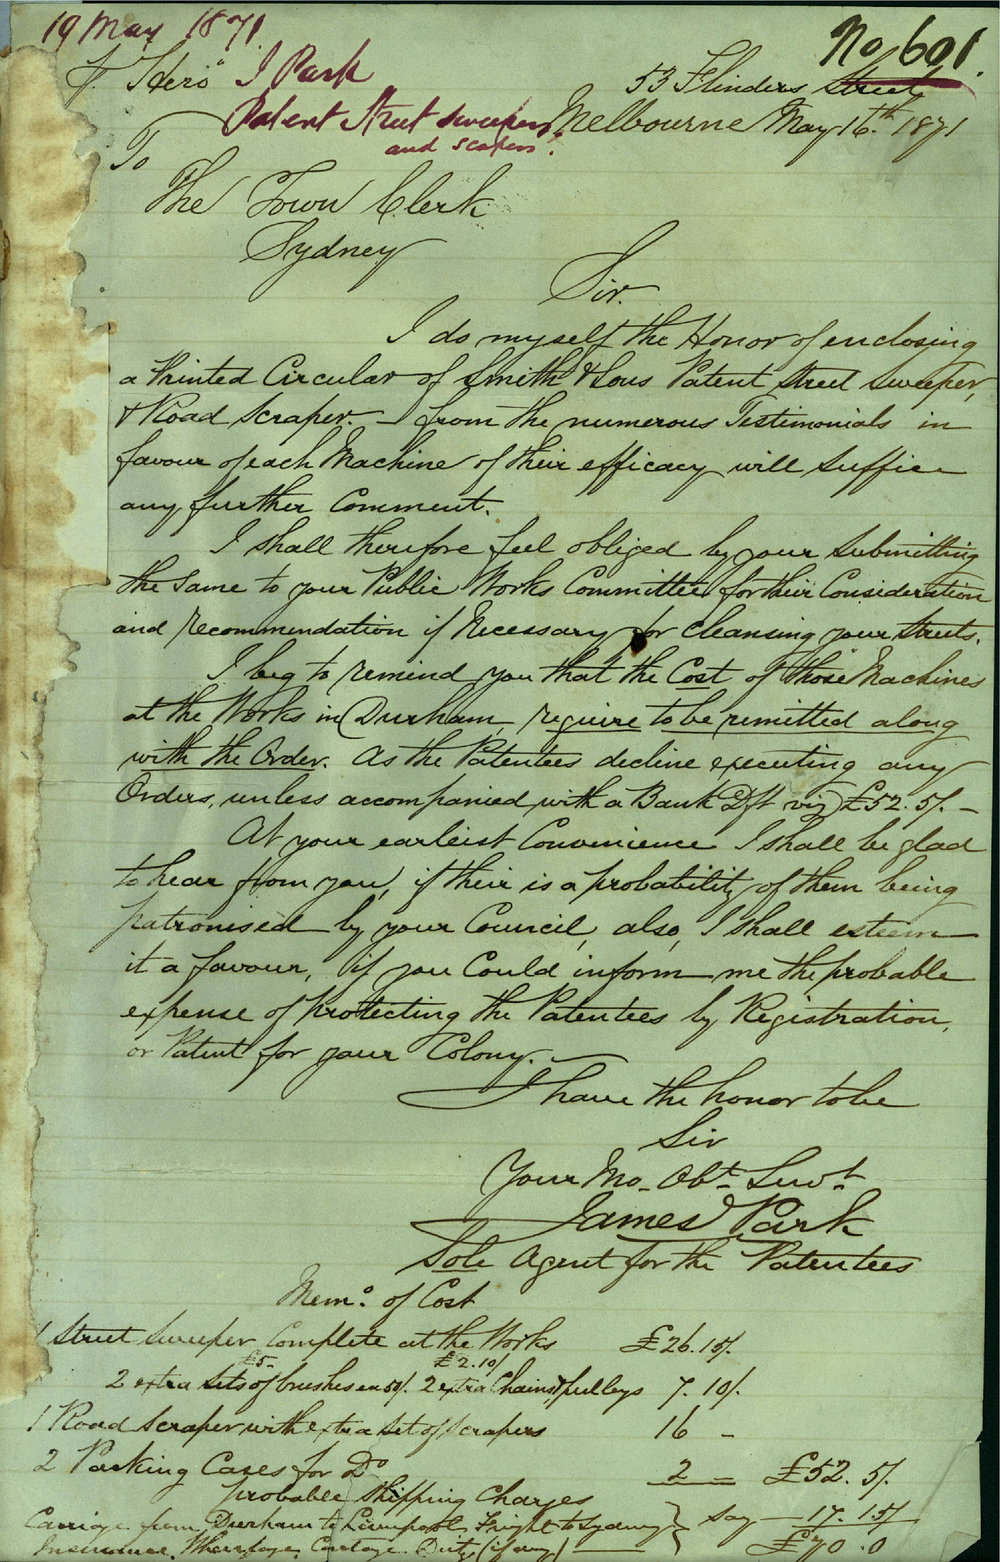 19 May 1871
No 601.
"Hero" J Park
53 Flinders Street
Patent Street sweepers
Melbourne May 16th 1871
and scapers.
To
The Town Clerk
Sydney
Sir.
I do myself the Honor of enclosing
a Printed Circular of Smith & Sons Patent Street Sweeper,
& Road Scraper. – from the numerous Testimonials in
favour of each Machine of their efficacy will suffice
any further Comment.
I shall therefore feel obliged by your Submitting
the Same to your Public Works Committee for their Consideration
and recommendation if Necessary for Cleansing your Streets.
I beg to remind you that the Cost of those Machines
at the Works in Durham, require to be remitted along
with the Order. As the Patentees decline executing any
Orders, unless accompanied with a Bank Dft viz £52.5/. –
At your earleist Convenience I shall be glad
to hear from you, if their is a probability of them being
patronised by your Council, also, I shall esteem
it a favour, if you Could inform me the probable
expense of protecting the Patentees by Registration,
or Patent for your Colony.
I have the honor to be
Sir
Your Mo. Obt. Servt.
James Park
Sole Agent for the Patentees
Memo. of Cost
1 Street Sweeper Complete at the Works £26.15/.
£5- £2.10/
2 extra sets of brushes ea 50/. 2 extra Chains & pulleys 7.10/.
1 Road Scraper with extra set of scrapers 16 –
2 Packing Cases for Do 2 – £52.5/.
probable Shipping Charges
Carriage from Durham to Liverpool, Freight to Sydney } say – 17.15/
Insurance, Wharfage, Cartage, Duty (if any) £70.0